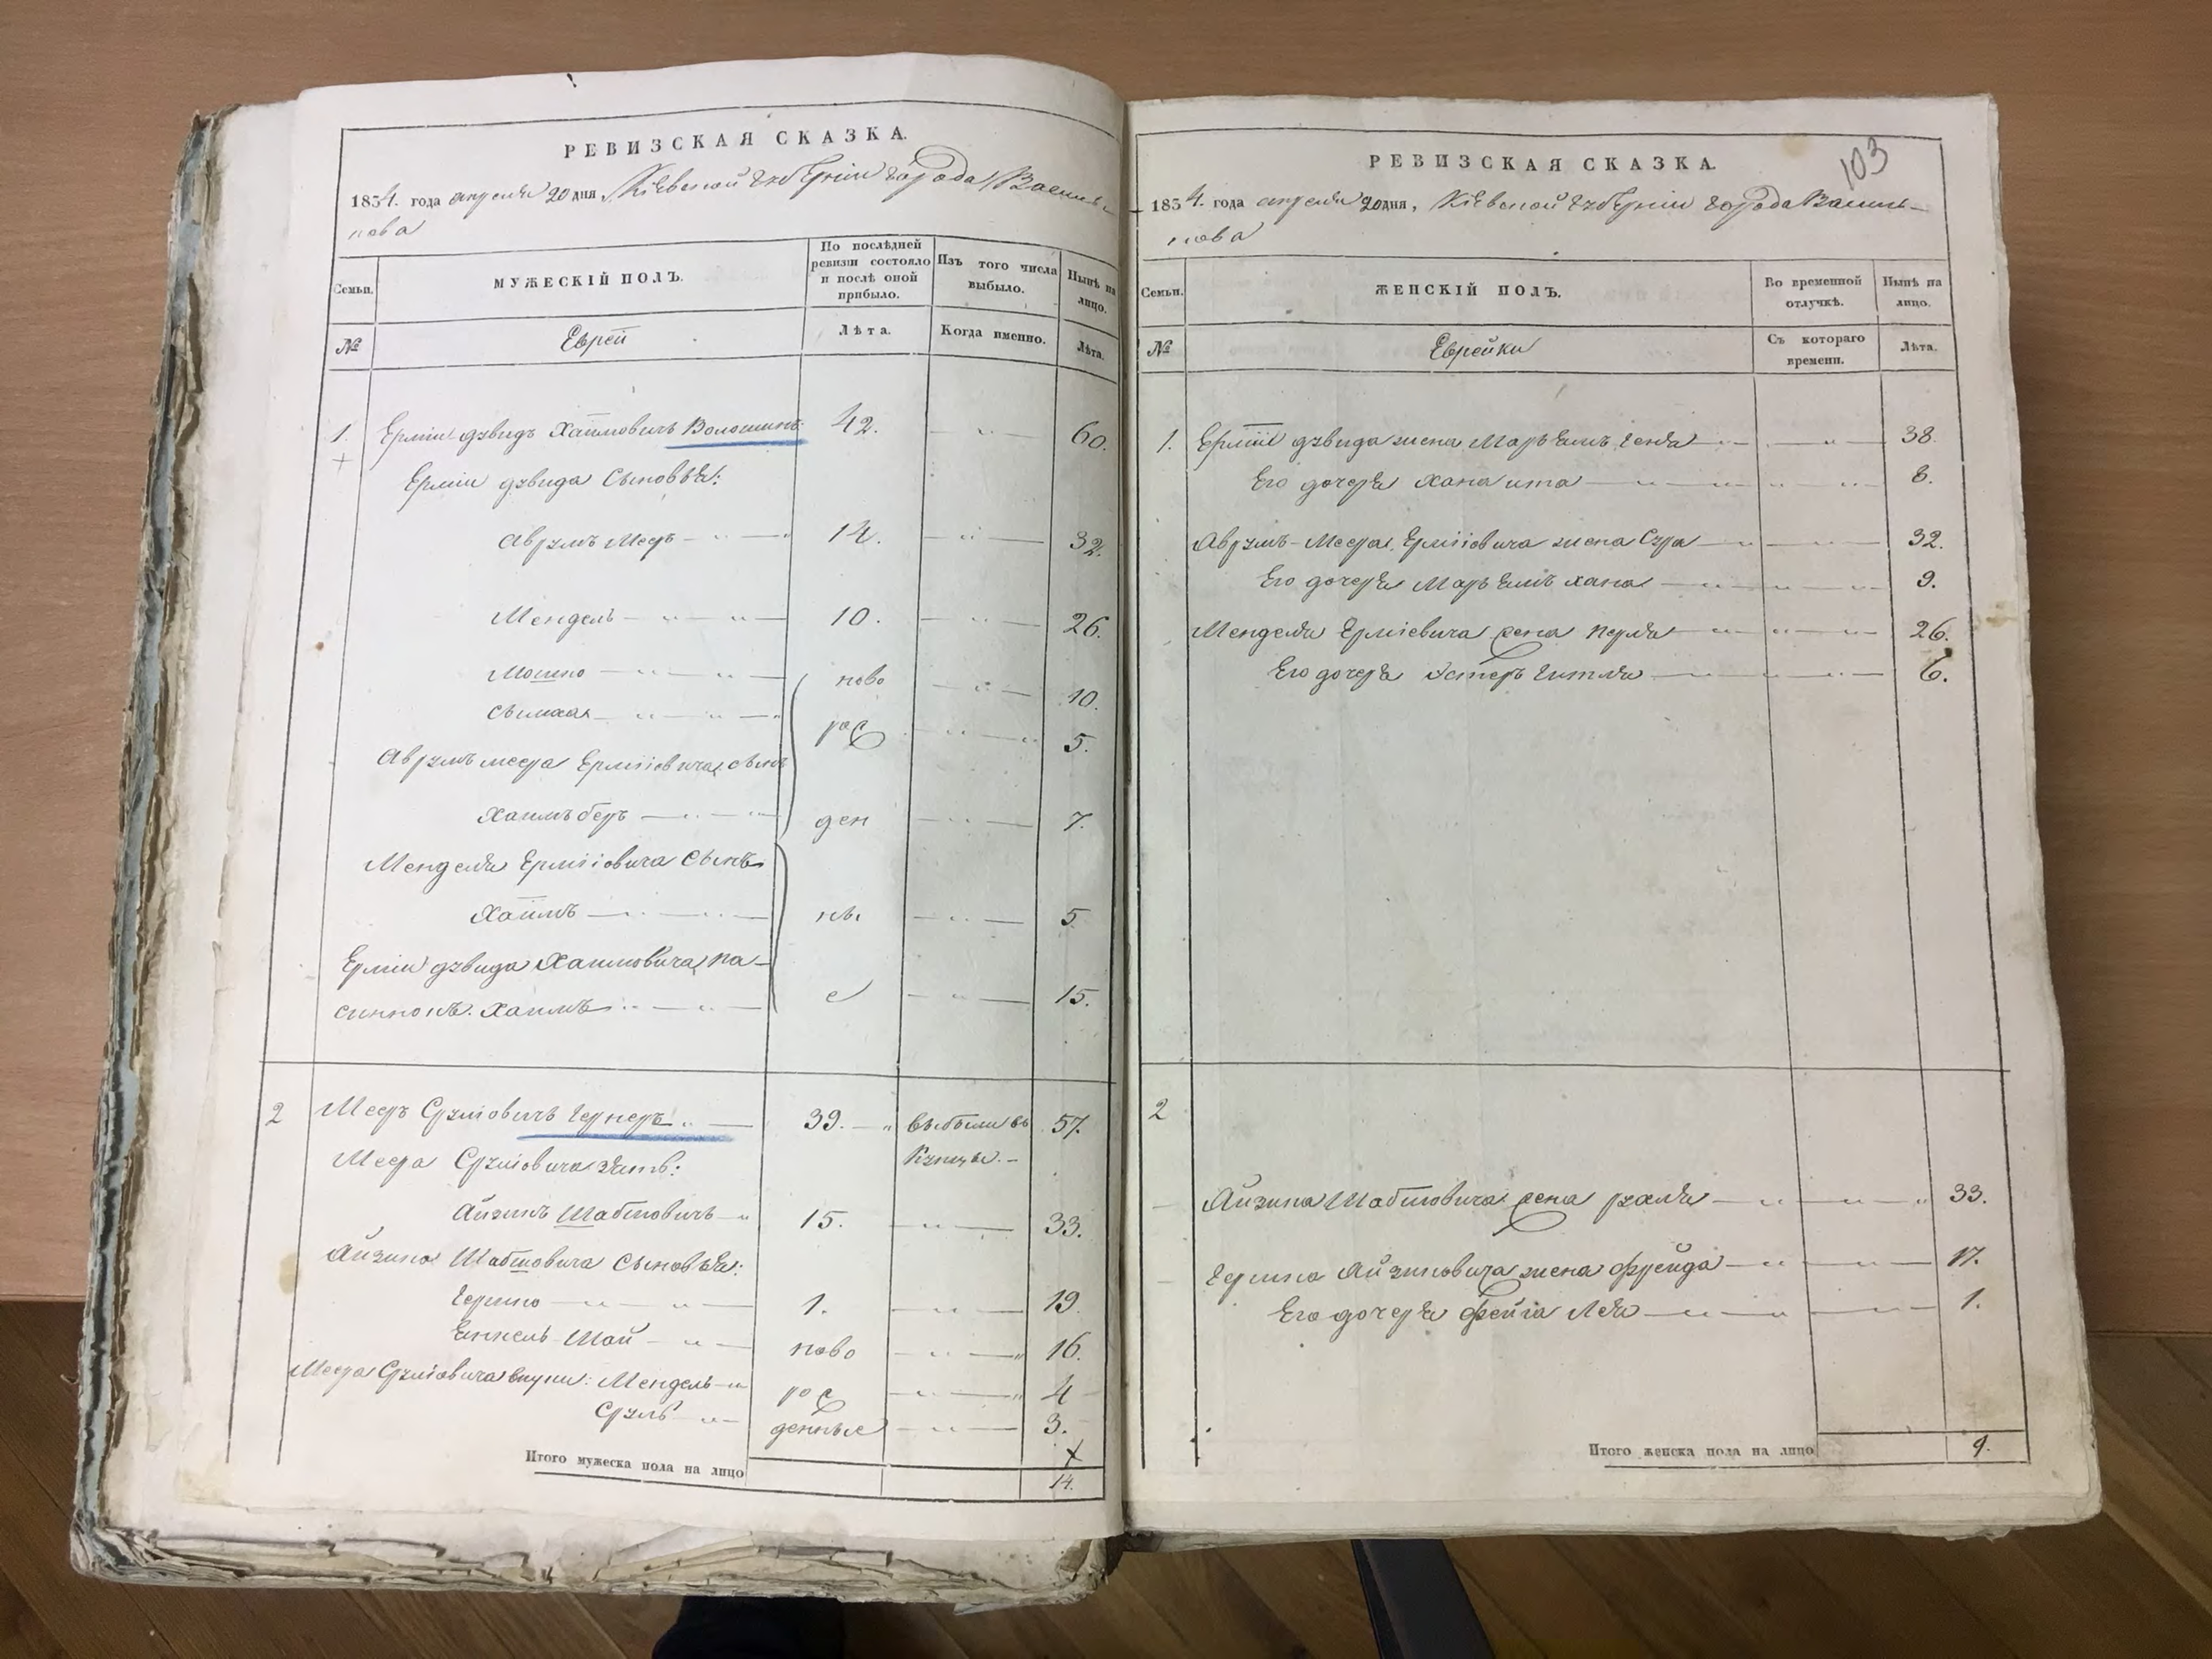 РЕВИЗСКАЯ СКАЗКА.
1854. года апреля 20 дня, Кіевской губерніи города Василь-
кова
Семьи. МУЖЕСКІЙ ПОЛЪ. По послѣдней ревизіи состояло и послѣ оной прибыло. Изъ того числа выбыло. Нынѣ на лицо.
№ Еврей Лѣта. Когда именно. Лѣта.
1. Ерміи дувидъ Хаимовичъ Волошинъ 42. 60.
Ерміи дувида Сыновья:
Аврумъ Меэръ 14. 32.
Мендель 10. 26.
Мошко ново 10.
Сымха рож 5.
Аврумъ меера Ерміовича сынъ
Хаимъ беръ ден 7.
Менделя Ерміовича Сынъ
Хаимъ ны 5
Ерміи дувида Хаимовича па-
синнокъ Хаимъ е 15.
2 Меэръ Сруліовичъ Чернеръ 39. выбыли въ 57.
Меэра Сруліовича зять: Купцы.
Айзикъ Шабшовичъ 15. 33.
Айзика Шабшовича Сыновья:
Гершко 1. 19
Еннель Шай ново 16.
Меэра Сруліовича внуки: Мендель рож 4
Срулъ денные 3.
Итого мужеска пола на лицо 14.
103
РЕВИЗСКАЯ СКАЗКА.
1854. года апреля 20 дня, Кіевской губерніи города Василь-
кова
Семьи. ЖЕНСКІЙ ПОЛЪ. Во временной отлучкѣ. Нынѣ на лицо.
№ Еврейки Съ котораго времени. Лѣта.
1. Ерміи дувида жена Марьямъ Геня 38.
Его дочеря Хана ита 8.
Аврумъ-Меера Ерміовича жена Сура 32.
Его дочеря Марьямъ хана 9.
Менделя Ерміевича жена перля 26.
Его дочеря Эстеръ гитля 6.
2
Айзика Шабшовича жена рухля 33.
Гершко Айзиковича жена фрейда 17.
Его дочеря фейга Лея 1.
Итого женска пола на лицо 9.